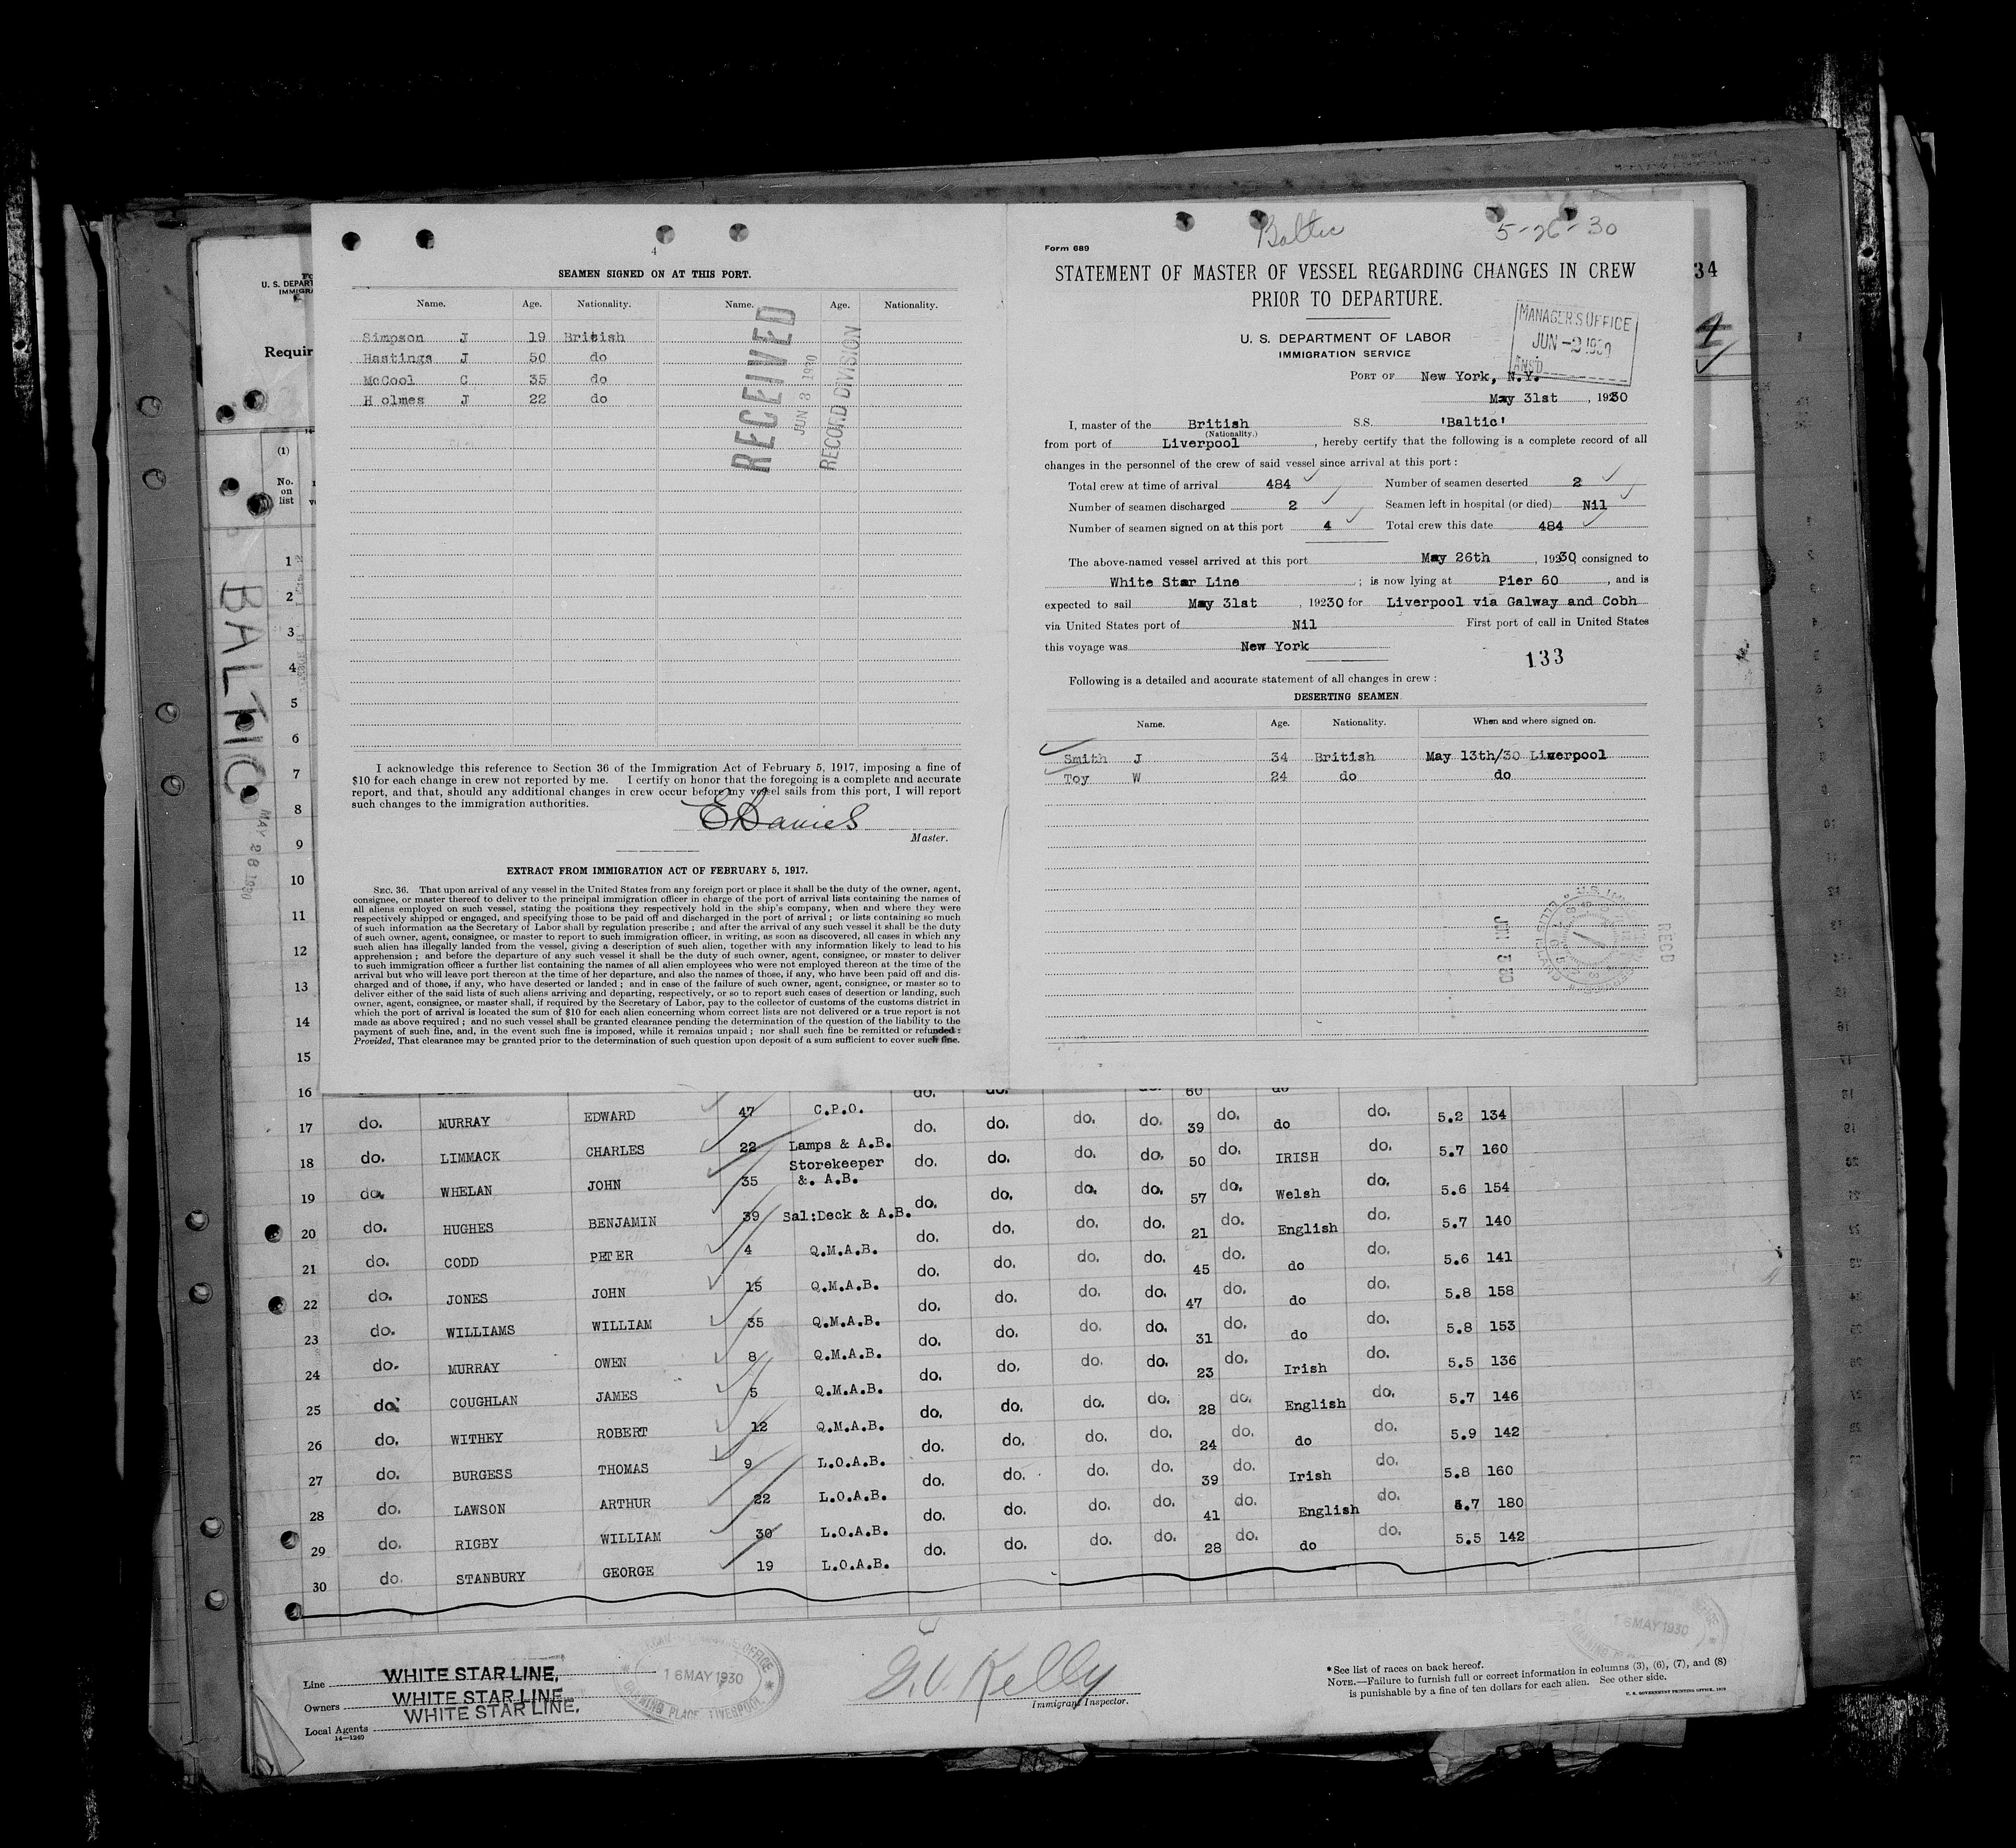 4
SEAMEN SIGNED ON AT THIS PORT.
Name. Age. Nationality. Name. Age. Nationality.
Simpson J 19 British
Hastings J 50 do
McCool C 35 do
H olmes J 22 do
RECEIVED
JUN 3 1930
RECORD DIVISION
I acknowledge this reference to Section 36 of the Immigration Act of February 5, 1917, imposing a fine of
$10 for each change in crew not reported by me. I certify on honor that the foregoing is a complete and accurate
report, and that, should any additional changes in crew occur before my vessel sails from this port, I will report
such changes to the immigration authorities.
E Davies
Master.
EXTRACT FROM IMMIGRATION ACT OF FEBRUARY 5, 1917.
SEC. 36. That upon arrival of any vessel in the United States from any foreign port or place it shall be the duty of the owner, agent,
consignee, or master thereof to deliver to the principal immigration officer in charge of the port of arrival lists containing the names of
all aliens employed on such vessel, stating the positions they respectively hold in the ship's company, when and where they were
respectively shipped or engaged, and specifying those to be paid off and discharged in the port of arrival; or lists containing so much
of such information as the Secretary of Labor shall by regulation prescribe; and after the arrival of any such vessel it shall be the duty
of such owner, agent, consignee, or master to report to such immigration officer, in writing, as soon as discovered, all cases in which any
such alien has illegally landed from the vessel, giving a description of such alien, together with any information likely to lead to his
apprehension; and before the departure of any such vessel it shall be the duty of such owner, agent, consignee, or master to deliver
to such immigration officer a further list containing the names of all alien employees who were not employed thereon at the time of the
arrival but who will leave port thereon at the time of her departure, and also the names of those, if any, who have been paid off and dis-
charged and of those, if any, who have deserted or landed; and in case of the failure of such owner, agent, consignee, or master so to
deliver either of the said lists of such aliens arriving and departing, respectively, or so to report such cases of desertion or landing, such
owner, agent, consignee, or master shall, if required by the Secretary of Labor, pay to the collector of customs of the customs district in
which the port of arrival is located the sum of $10 for each alien concerning whom correct lists are not delivered or a true report is not
made as above required; and no such vessel shall be granted clearance pending the determination of the question of the liability to the
payment of such fine, and, in the event such fine is imposed, while it remains unpaid; nor shall such fine be remitted or refunded:
Provided, That clearance may be granted prior to the determination of such question upon deposit of a sum sufficient to cover such fine.
Form 689
Baltic 5-26-30
STATEMENT OF MASTER OF VESSEL REGARDING CHANGES IN CREW
PRIOR TO DEPARTURE.
U. S. DEPARTMENT OF LABOR
IMMIGRATION SERVICE
MANAGER'S OFFICE
JUN -2 1930
ANS'D
PORT OF New York, N.Y.
May 31st, 1930
I, master of the British S.S. 'Baltic'
(Nationality.)
from port of Liverpool, hereby certify that the following is a complete record of all
changes in the personnel of the crew of said vessel since arrival at this port:
Total crew at time of arrival 484 Number of seamen deserted 2
Number of seamen discharged 2 Seamen left in hospital (or died) Nil
Number of seamen signed on at this port 4 Total crew this date 484
The above-named vessel arrived at this port May 26th, 19230 consigned to
White Star Line; is now lying at Pier 60, and is
expected to sail May 31st, 19230 for Liverpool via Galway and Cobh
via United States port of Nil First port of call in United States
this voyage was New York
133
Following is a detailed and accurate statement of all changes in crew:
DESERTING SEAMEN
Name. Age. Nationality. When and where signed on.
Smith J 34 British May 13th/30 Liverpool
Toy W 24 do do
REC'D
U. S. DEPART
IMMIGRA
Requir
34
(1)
No.
on
list
BALTIC
MAY 28 1930
1
2
3
4
5
6
7
8
9
10
11
12
13
14
15
16 do. do. do. 60 do
17 do. MURRAY EDWARD 47 C.P.O. do. do. do. do. 39 do. do do. 5.2 134
18 do. LIMMACK CHARLES 22 Lamps & A.B. do. do. do. do. 50 do. IRISH do. 5.7 160
19 do. WHELAN JOHN 35 Storekeeper &. A.B. do. do. do. do. 57 do. Welsh do. 5.6 154
20 do. HUGHES BENJAMIN 39 Sal:Deck & A.B. do. do. do. do. 21 do. English do. 5.7 140
21 do. CODD PETER 4 Q.M.A.B. do. do. do. do. 45 do. do do. 5.6 141
22 do. JONES JOHN 15 Q.M.A.B. do. do. do. do. 47 do. do do. 5.8 158
23 do. WILLIAMS WILLIAM 35 Q.M.A.B. do. do. do. do. 31 do. do do. 5.8 153
24 do. MURRAY OWEN 8 Q.M.A.B. do. do. do. do. 23 do. Irish do. 5.5 136
25 do. COUGHLAN JAMES 5 Q.M.A.B. do. do. do. do. 28 do. English do. 5.7 146
26 do. WITHEY ROBERT 12 Q.M.A.B. do. do. do. do. 24 do. do do. 5.9 142
27 do. BURGESS THOMAS 9 L.O.A.B. do. do. do. do. 39 do. Irish do. 5.8 160
28 do. LAWSON ARTHUR 22 L.O.A.B. do. do. do. do. 41 do. English do. 5.7 180
29 do. RIGBY WILLIAM 30 L.O.A.B. do. do. do. do. 28 do. do do. 5.5 142
30 do. STANBURY GEORGE 19 L.O.A.B.
Line WHITE STAR LINE,
Owners WHITE STAR LINE,
Local Agents WHITE STAR LINE,
14—1240
16 MAY 1930
CANNING PLACE, LIVERPOOL
G. V. Kelly
Immigrant Inspector.
16 MAY 1930
* See list of races on back hereof.
NOTE.—Failure to furnish full or correct information in columns (3), (6), (7), and (8)
is punishable by a fine of ten dollars for each alien. See other side.
U. S. GOVERNMENT PRINTING OFFICE